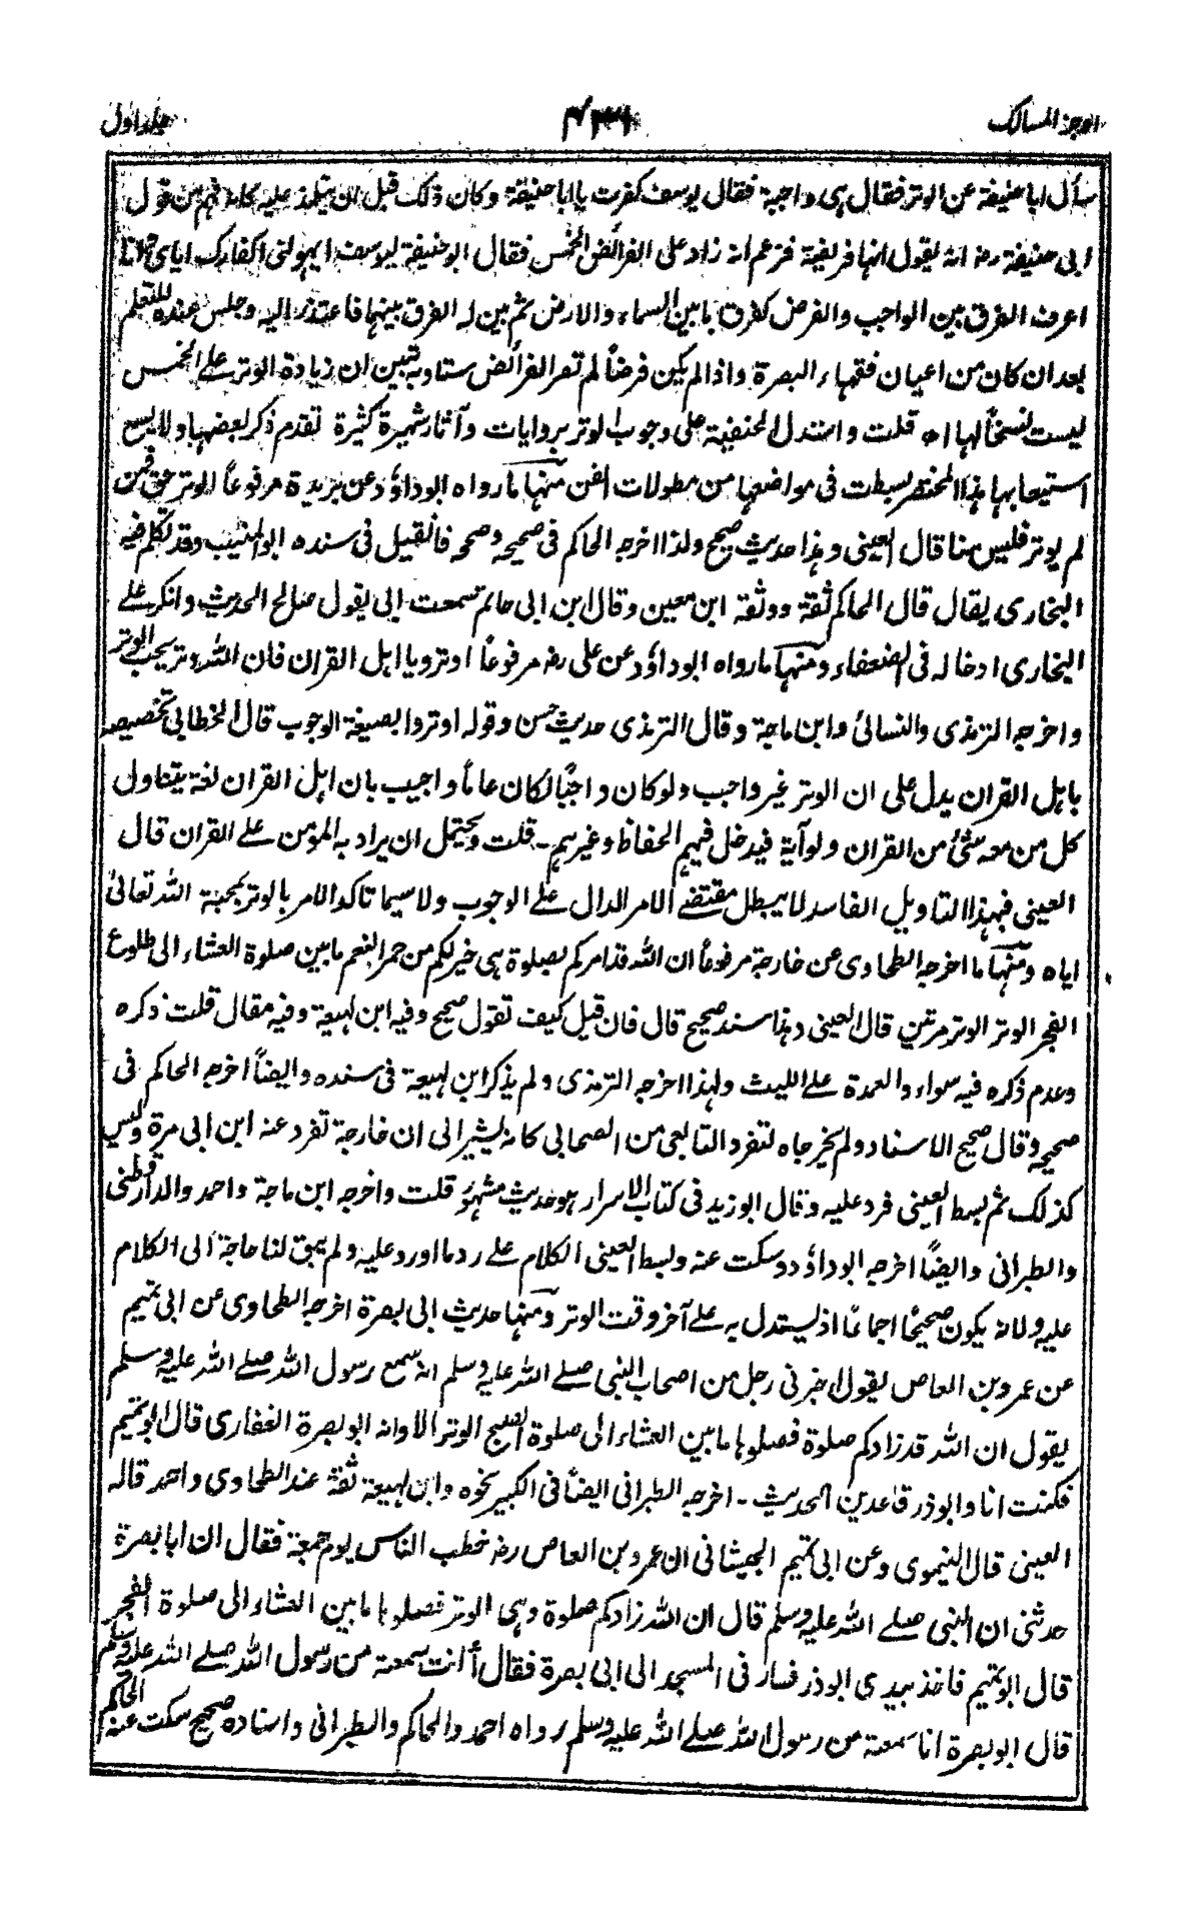 اوجز المسالک
۴۳۱
جلد اول
سأل ابا حنیفة عن الوتر فقال ہی واجبة فقال یوسف کفرت یا ابا حنیفة وکان ذلک قبل ان یتلمذ علیہ کانہ فہم من قول
ابی حنیفة رضہ انہ یقول انہا فریضة فزعم انہ زاد علی الفرائض الخمس فقال ابو حنیفة لیوسف ایہولنی اکفارک ایای وانا
اعرف الفرق بین الواجب والفرض کفرق ما بین السماء والارض ثم بین لہ الفرق بینہما فاعتذر الیہ وجلس عندہ للتعلم
بعد ان کان من اعیان فقہاء البصرة واذا لم یکن فرضاً لم تصر الفرائض ستا وبہ تبین ان زیادة الوتر علی الخمس
لیست نسخاً لہا اہ قلت واستدل الحنفیة علی وجوب الوتر بروایات وآثار شہیرة کثیرة تقدم ذکر بعضہا ولا یسع
استیعابہا ہذا المختصر بسطت فی مواضعہا من مطولات الفن منہا ما رواہ ابو داؤد عن بریدة مرفوعاً الوتر حق فمن
لم یوتر فلیس منا قال العینی وہذا حدیث صحیح ولذا اخرجہ الحاکم فی صحیحہ وصححہ فان قیل فی سندہ ابو المنیب وقد تکلم فیہ
البخاری یقال قال الحاکم ثقة ووثقہ ابن معین وقال ابن ابی حاتم سمعت ابی یقول صالح الحدیث وانکر علی
البخاری ادخالہ فی الضعفاء ومنہا ما رواہ ابو داؤد عن علی رضہ مرفوعاً اوتروا یا اہل القران فان اللہ وتر یحب الوتر
واخرجہ الترمذی والنسائی وابن ماجة وقال الترمذی حدیث حسن وقولہ اوتروا بصیغة الوجوب قال الخطابی تخصیصہ
باہل القران یدل علی ان الوتر غیر واجب ولو کان واجبًا لکان عاماً واجیب بان اہل القران لغة یتناول
کل من معہ شئ من القران ولو آیة فیدخل فیہم الحفاظ وغیرہم ۔ قلت ویحتمل ان یراد بہ المؤمن علی القران قال
العینی فبہذا التاویل الفاسد لا یبطل مقتضی الامر الدال علی الوجوب ولا سیما تاکد الامر بالوتر بمحبة اللہ تعالی
ایاہ ومنہا ما اخرجہ الطحاوی عن خارجة مرفوعاً ان اللہ قد امرکم بصلوة ہی خیر لکم من حمر النعم ما بین صلوة العشاء الی طلوع
الفجر الوتر الوتر مرتین قال العینی وہذا سند صحیح قال فان قیل کیف تقول صحیح وفیہ ابن لہیعة وفیہ مقال قلت ذکرہ
وعدم ذکرہ فیہ سواء والعمدة علی اللیث ولہذا اخرجہ الترمذی ولم یذکر ابن لہیعة فی سندہ وایضاً اخرجہ الحاکم فی
صحیحہ وقال صحیح الاسناد ولم یخرجاہ لتفرد التابعی من الصحابی کانہ یشیر الی ان خارجة تفرد عنہ ابن ابی مرة ولیس
کذلک ثم بسط العینی فرد علیہ وقال ابو زید فی کتاب الاسرار ہو حدیث مشہور قلت واخرجہ ابن ماجة واحمد والدارقطنی
والطبرانی وایضًا اخرجہ ابو داؤد وسکت عنہ وبسط العینی الکلام علی رد ما اورد علیہ ولم یبق لنا حاجة الی الکلام
علیہ ولانہ یکون صحیحًا اجماعًا اذ یستدل بہ علی آخر وقت الوتر ومنہا حدیث ابی بصرة اخرجہ الطحاوی عن ابی تمیم
عن عمرو بن العاص یقول اخبرنی رجل من اصحاب النبی صلی اللہ علیہ وسلم انہ سمع رسول اللہ صلی اللہ علیہ وسلم
یقول ان اللہ قد زادکم صلوة فصلوہا ما بین العشاء الی صلوة الصبح الوتر الا وانہ ابو بصرة الغفاری قال ابو تمیم
فکنت انا وابو ذر قاعدین الحدیث ۔ اخرجہ الطبرانی ایضاً فی الکبیر نحوہ وابن لہیعة ثقة عند الطحاوی واحمد قالہ
العینی قال النیموی وعن ابی تمیم الجیشانی ان عمرو بن العاص رضہ خطب الناس یوم جمعة فقال ان ابا بصرة
حدثنی ان النبی صلی اللہ علیہ وسلم قال ان اللہ زادکم صلوة وہی الوتر فصلوہا ما بین العشاء الی صلوة الفجر
قال ابو تمیم فاخذ بیدی ابو ذر فسار فی المسجد الی ابی بصرة فقال أانت سمعتہ من رسول اللہ صلی اللہ علیہ وسلم
قال ابو بصرة انا سمعتہ من رسول اللہ صلی اللہ علیہ وسلم رواہ احمد والحاکم والطبرانی واسنادہ صحیح سکت عنہ الحاکم